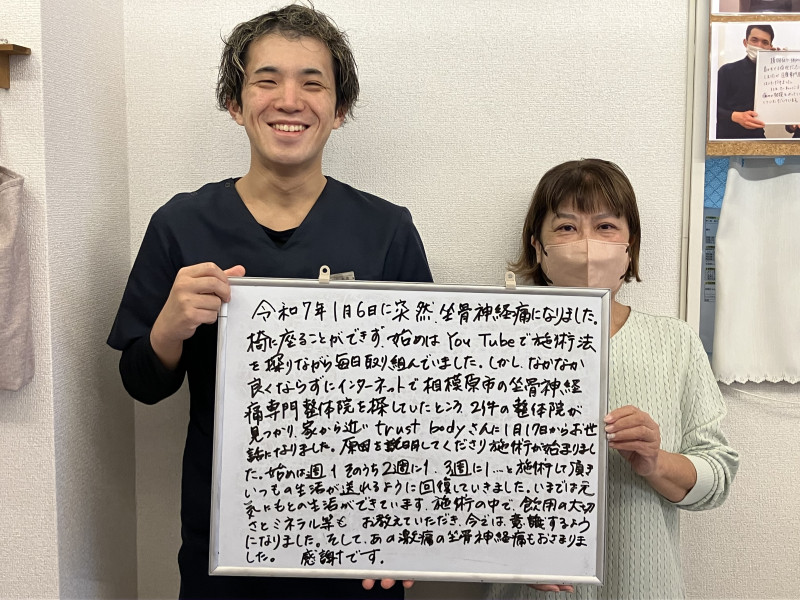 令和7年1月6日に突然、坐骨神経痛になりました。
椅に座ることができず、始めは YouTubeで施術法
を探りながら毎日取り組んでいました。しかし、なかなか
良くならずにインターネットで相模原市の坐骨神経
痛専門整体院を探していたところ、2件の整体院が
見つかり、家から近い trust bodyさんに1月17日からお世
話になりました。原因を説明してくださり施術が始まりまし
た。始めは週1 そのうち2週に1、3週に1…と施術して頂き
いつもの生活が送れるように回復していきました。いまでは元
気にもとの生活ができています。施術の中で、飲用の大切
さとミネラル等も お教えていただき、今では、意識するよう
になりました。そして、あの激痛の坐骨神経痛もおさまりま
した。 感謝です。